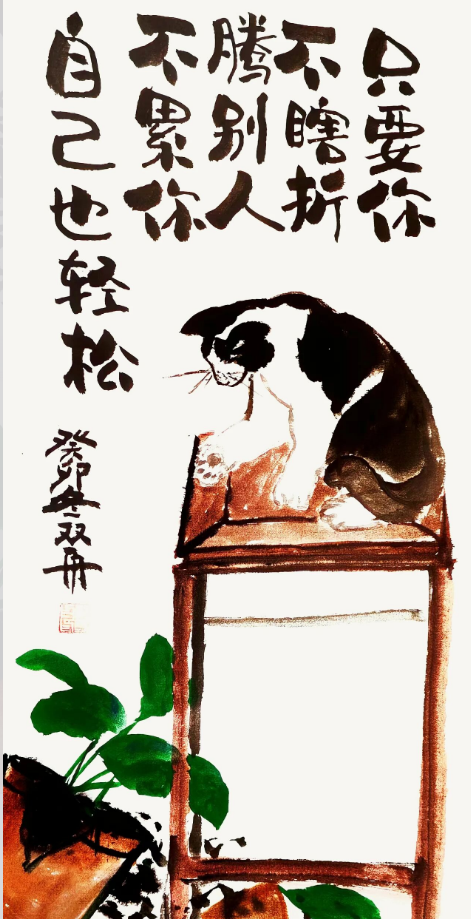 只要你
不瞎折
腾别人
不累你
自己也轻松
癸卯冬双舟